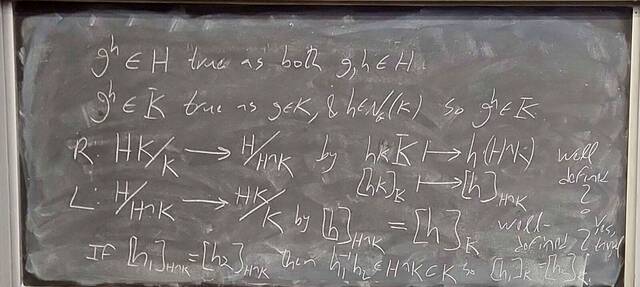 g^h ∈ H true as both g,h ∈ H.
g^h ∈ K true as g∈K, & h∈N_G(K) so g^h ∈ K.
R: HK/K → H/H∩K by hkK ↦ h(H∩K) well
[hk]_K ↦ [h]_{H∩K} define ?
L: H/H∩K → HK/K by [h]_{H∩K} = [h]_K well-define ? Yes,
If [h_1]_{H∩K} = [h_2]_{H∩K} then h_1^{-1}h_2 ∈ H∩K ⊂ K so [h_1]_K = [h_2]_K